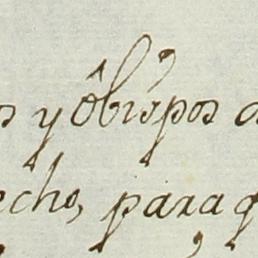 s y Ôbispos d
echo, para q